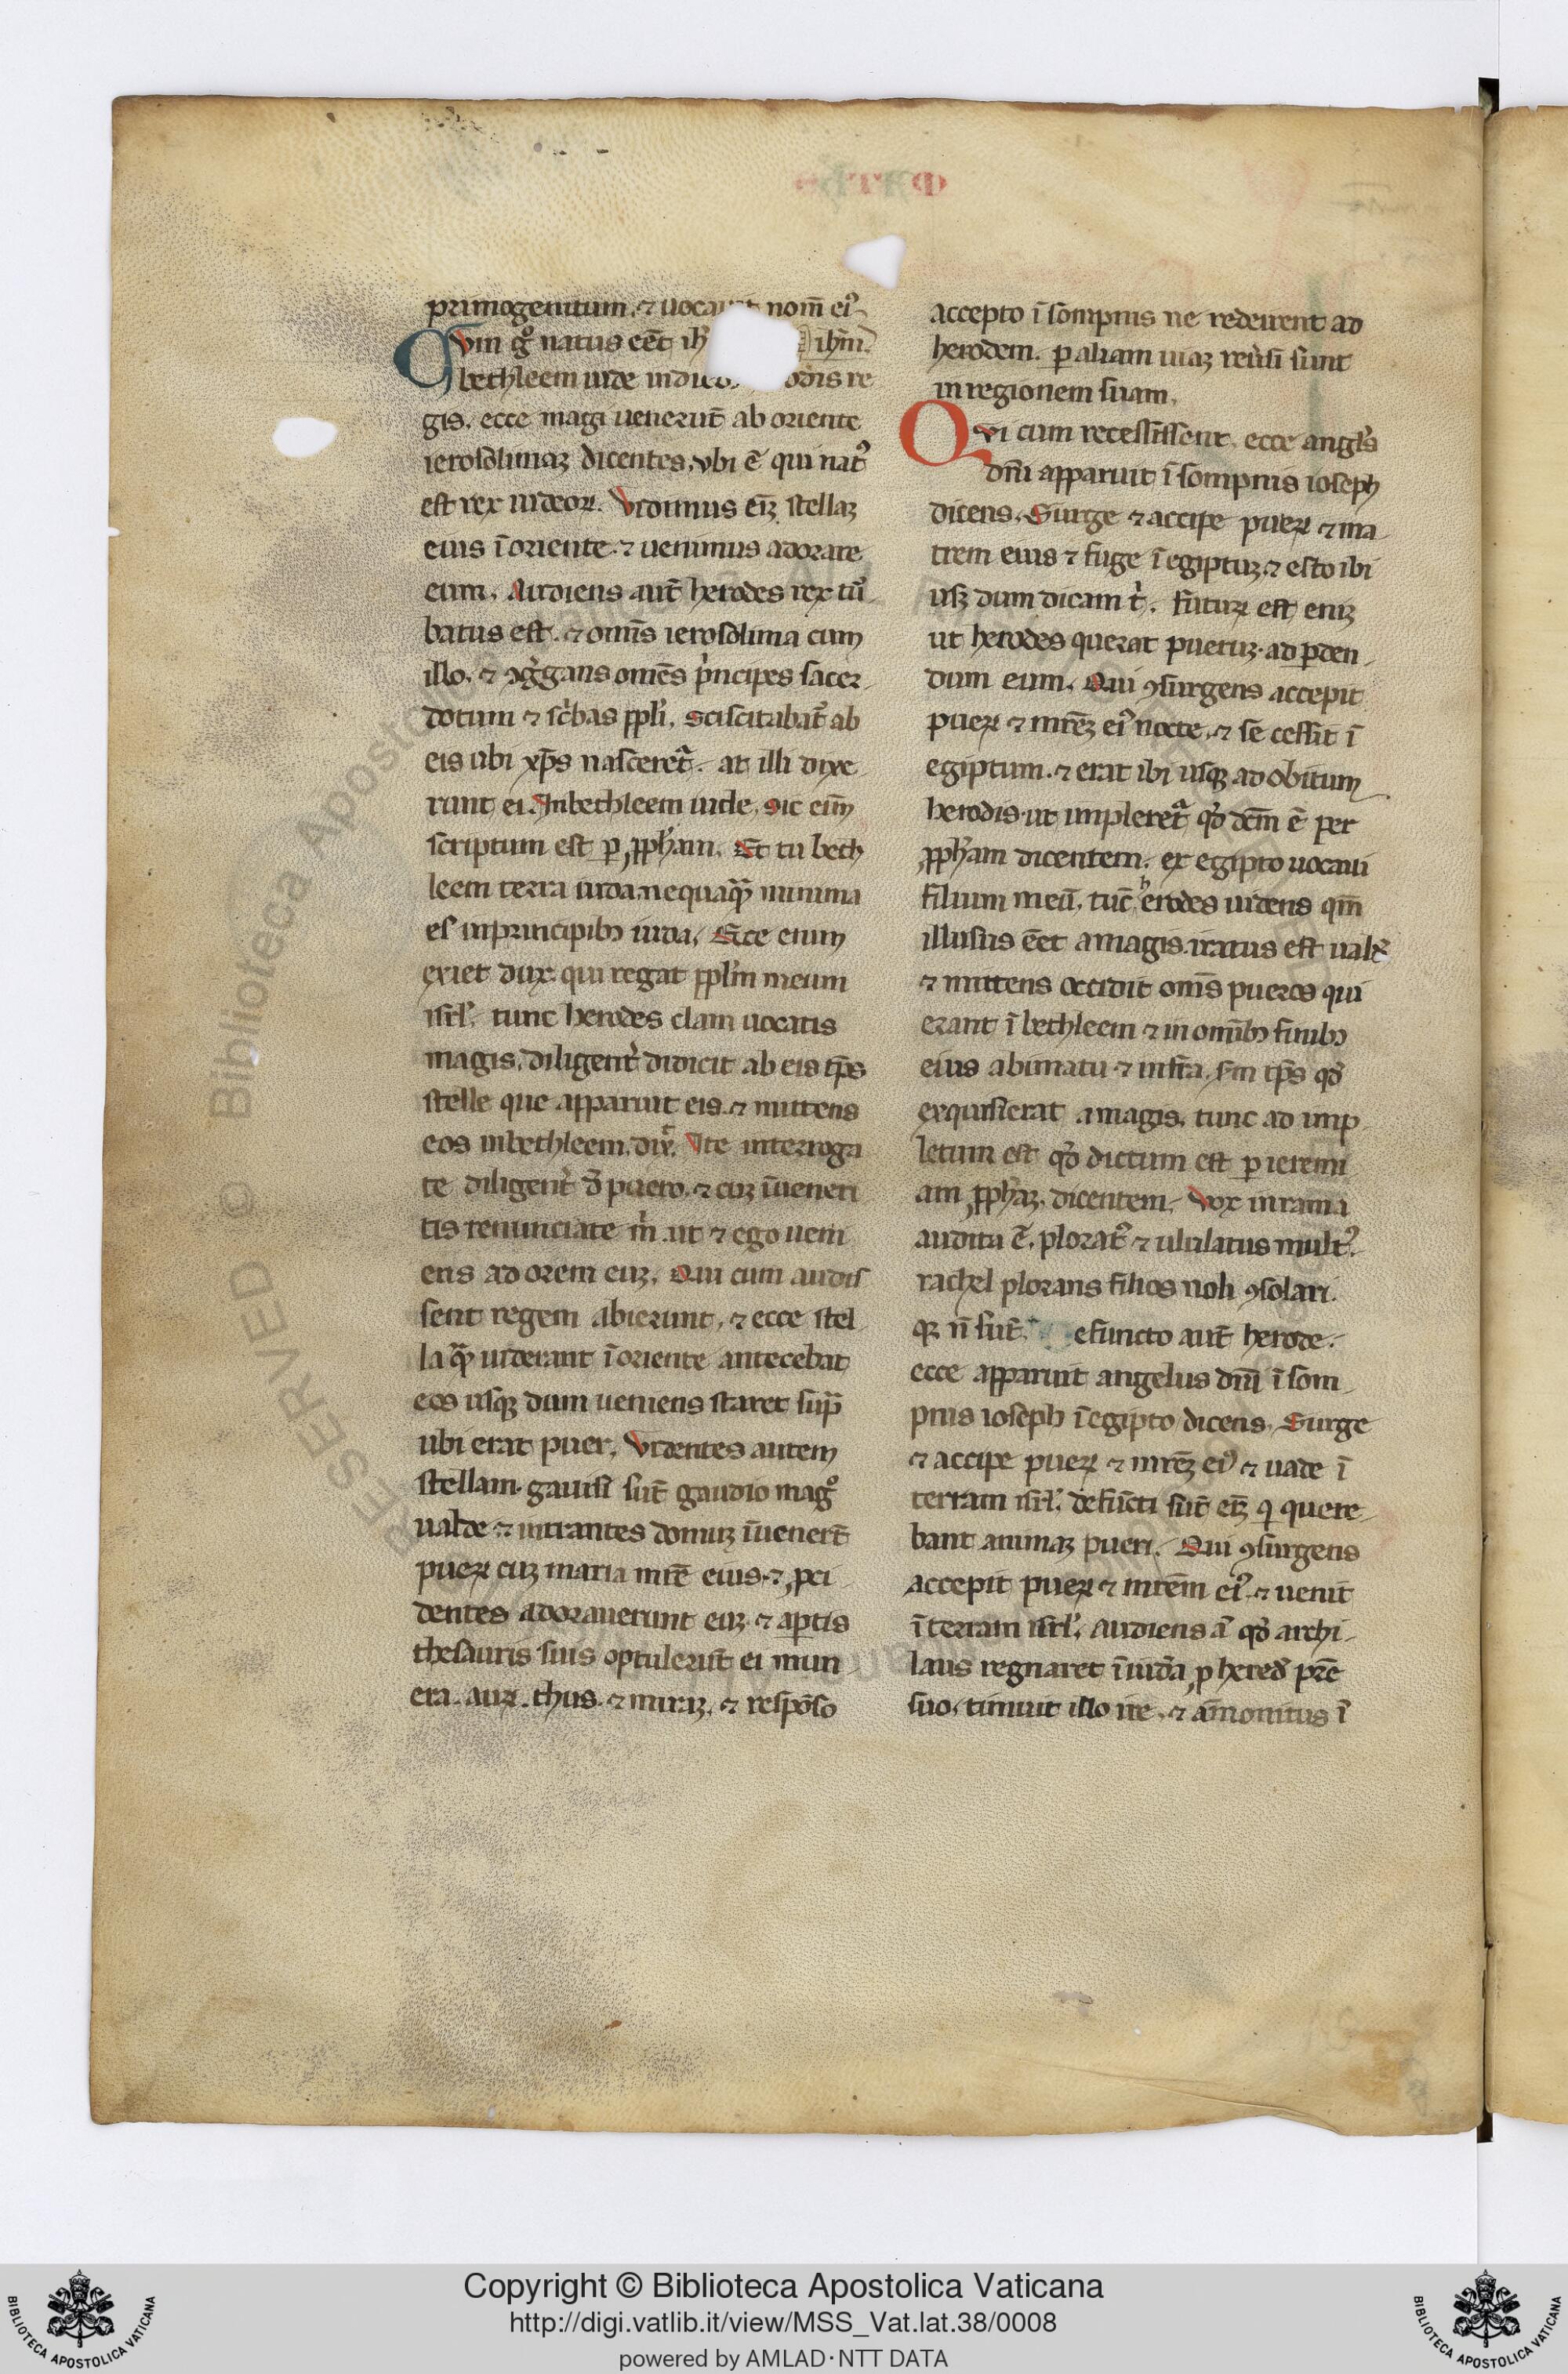 primogenitum. ⁊ uocauit nom̄ eiꝰ
Cvm g̊ natus eēt ih̅c ihm̅.
bethleem iude in dieb; odis re
gis. ecce magi uenerūt ab oriente
ierosolimaʒ dicentes. vbi ē qui natꝰ
est rex iudeoꝝ. Vidimus eīʒ stellaʒ
eius ī oriente. ⁊ uenimus adorare
eum. Audiens aūt herodes rex tu᷑
batus est. ⁊ om̅s ierosolima cum
illo. ⁊ ꝯg̍gans om̅es p̍ncipes sacer
dotum ⁊ sc̍bas ppl̍i. sciscitabat᷑ ab
eis ubi xp̅s nasceret᷑. at illi dixe
runt ei. In bethleem iude. sic eīm
scriptum est ꝑ ꝓph̅am. Et tu beth
leem terra iuda. nequaqᷓ minima
es in principibꝫ iuda. Ex te enim
exiet dux qui regat ppl̅m meum
isrl̅. tunc herodes clam uocatis
magis. diligent᷑ didicit ab eis tp̅s
stelle que apparuit eis. ⁊ mittens
eos in bethleem. dix᷑. Ite interroga
te diligent᷑ d̅ puero. ⁊ cuʒ īueneri
tis renunciate m̍ ut ⁊ ego ueni
ens adorem euʒ. Qui cum audis
sent regem abierunt. ⁊ ecce stel
la qᷓ uiderant ī oriente antecebat
eos usqʒ dum ueniens staret supᷓ
ubi erat puer. Videntes autem
stellam. gauisi sūt gaudio mag̊
ualde ⁊ intrantes domuʒ īuenerūt
pueꝝ cuʒ maria mr̅e eius. ⁊ ꝓci
dentes adorauerunt euʒ. ⁊ aꝑtis
thesauris suis optulerūt ei mun
era. auꝝ. thus. ⁊ mirraʒ. ⁊ respōso
accepto ī sompnis ne redeirent ad
herodem. ꝑ aliam uiaʒ reu᷑si sunt
in regionem suam.
Qvi cum recessissent. ecce angl̅s
dn̅i apparuit ī sompnis ioseph
dicens. Surge ⁊ accipe pueꝝ ⁊ ma
trem eius ⁊ fuge ī egiptuʒ. ⁊ esto ibi
usqʒ dum dicam t̍. Futuꝝ est eniʒ
ut herodes querat pueruʒ. ad ꝑden
dum eum. Qui ꝯsurgens accepit
pueꝝ ⁊ mr̅eʒ eiꝰ nocte. ⁊ se cessit ī
egiptum. ⁊ erat ibi usqʒ ad obitum
herodis. ut impleret᷑ qd̊ dc̅m ē per
ꝓph̅am dicentem. ex egipto uocaui
filium meū. tūc herodes uidens qm̅
illusus eēt a magis. iratus est uald
⁊ mittens occidit om̅s pueros qui
erant ī bethleem ⁊ in om̅ibꝫ finibꝫ
eius a bimatu ⁊ infra. s̅m tp̅s qd̊
exquisierat a magis. tunc ad imp
letum est qd̊ dictum est ꝑ ieremi
am ꝓph̅aʒ. dicentem. Vox in rama
audita ē. ploratꝰ ⁊ ululatus multꝰ.
rachel plorans filios. noli ꝯsolari.
qʒ n̅ sūt. efuncto aūt herode.
ecce apparuit angelus dn̅i ī som
pnis ioseph ī egipto dicens. Surge
⁊ accipe pueꝝ ⁊ mr̅eʒ eiꝰ ⁊ uade ī
terram isrl̅. defūcti sūt eīʒ q̍ quere
bant animaʒ pueri. Qui ꝯsurgens
accepit pueꝝ ⁊ mr̅em eiꝰ. ⁊ uenit
ī terram isrl̅. Audiens a̍ qd̊ archi
laus regnaret ī iudā ꝓ hered̍ pr̅e
suo. timuit illo ire. ⁊ āmonitus ī
Copyright © Biblioteca Apostolica Vaticana
http://digi.vatlib.it/view/MSS_Vat.lat.38/0008
powered by AMLAD·NTT DATA
BIBLIOTECA APOSTOLICA VATICANA
BIBLIOTECA APOSTOLICA VATICANA